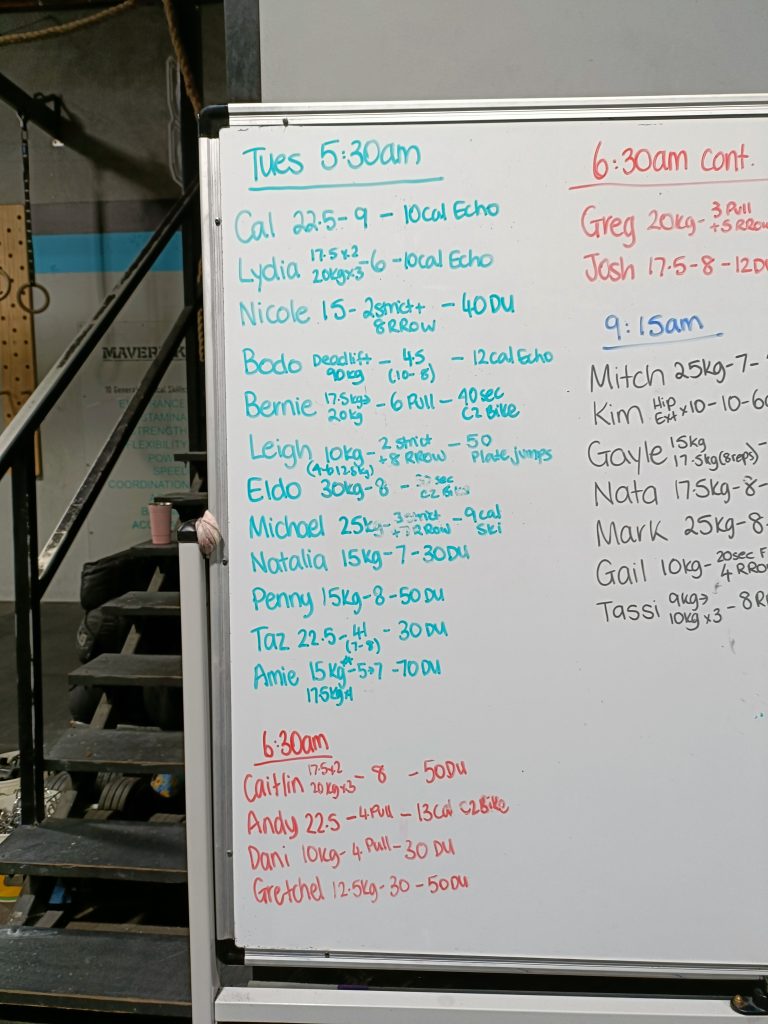 Tues 5:30am
Cal 22.5 - 9 - 10cal Echo
Lydia 17.5x2 20kgx3 - 6 - 10cal Echo
Nicole 15 - 2 strict + 8 RROW - 40 DU
Bodo Deadlift 90kg - 45 (10-8) - 12cal Echo
Bernie 17.5kg→ 20kg - 6 Pull - 40sec C2 Bike
Leigh 10kg - 2 strict +8 RROW - 50 Plate jumps
Eldo 30kg - 8 - sec C2 Bike
Michael 25kg - 3 strict Row - 9cal Ski
Natalia 15kg - 7 - 30DU
Penny 15kg - 8 - 50DU
Taz 22.5 - 41 (7-8) - 30 DU
Amie 15kg - 5→7 - 70 DU
17.5kg
6:30am
Caitlin 17.5x2 20kgx3 - 8 - 50DU
Andy 22.5 - 4 Pull - 13 Cal C2Bike
Dani 10kg - 4 Pull - 30 DU
Gretchel 12.5kg - 30 - 50DU
6:30am cont.
Greg 20kg - 3 Pull +5 RROW
Josh 17.5 - 8 - 12DU
9:15am
Mitch 25kg - 7 -
Kim Hip Ext x10 - 10 - 6
Gayle 15kg 17.5kg (8reps) -
Nata 17.5kg - 8 -
Mark 25kg - 8 -
Gail 10kg - 20sec F 4 RROW
Tassi 9kg→ 10kg x3 - 8 R
MAVERICK
10 General Physical Skills
ENDURANCE
STAMINA
STRENGTH
FLEXIBILITY
POWER
SPEED
COORDINATION